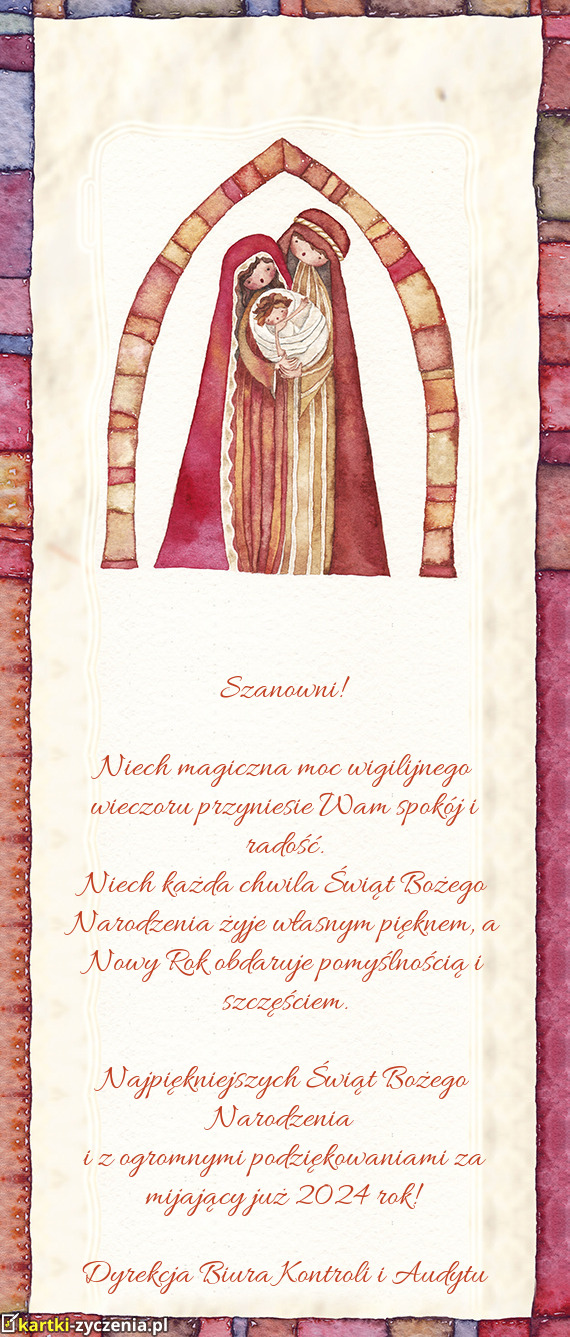 Szanowni!
Niech magiczna moc wigilijnego
wieczoru przyniesie Wam spokój i
radość.
Niech każda chwila Świąt Bożego
Narodzenia żyje własnym pięknem, a
Nowy Rok obdaruje pomyślnością i
szczęściem.
Najpiękniejszych Świąt Bożego
Narodzenia
i z ogromnymi podziękowaniami za
mijający już 2024 rok!
Dyrekcja Biura Kontroli i Audytu
kartki-zyczenia.pl